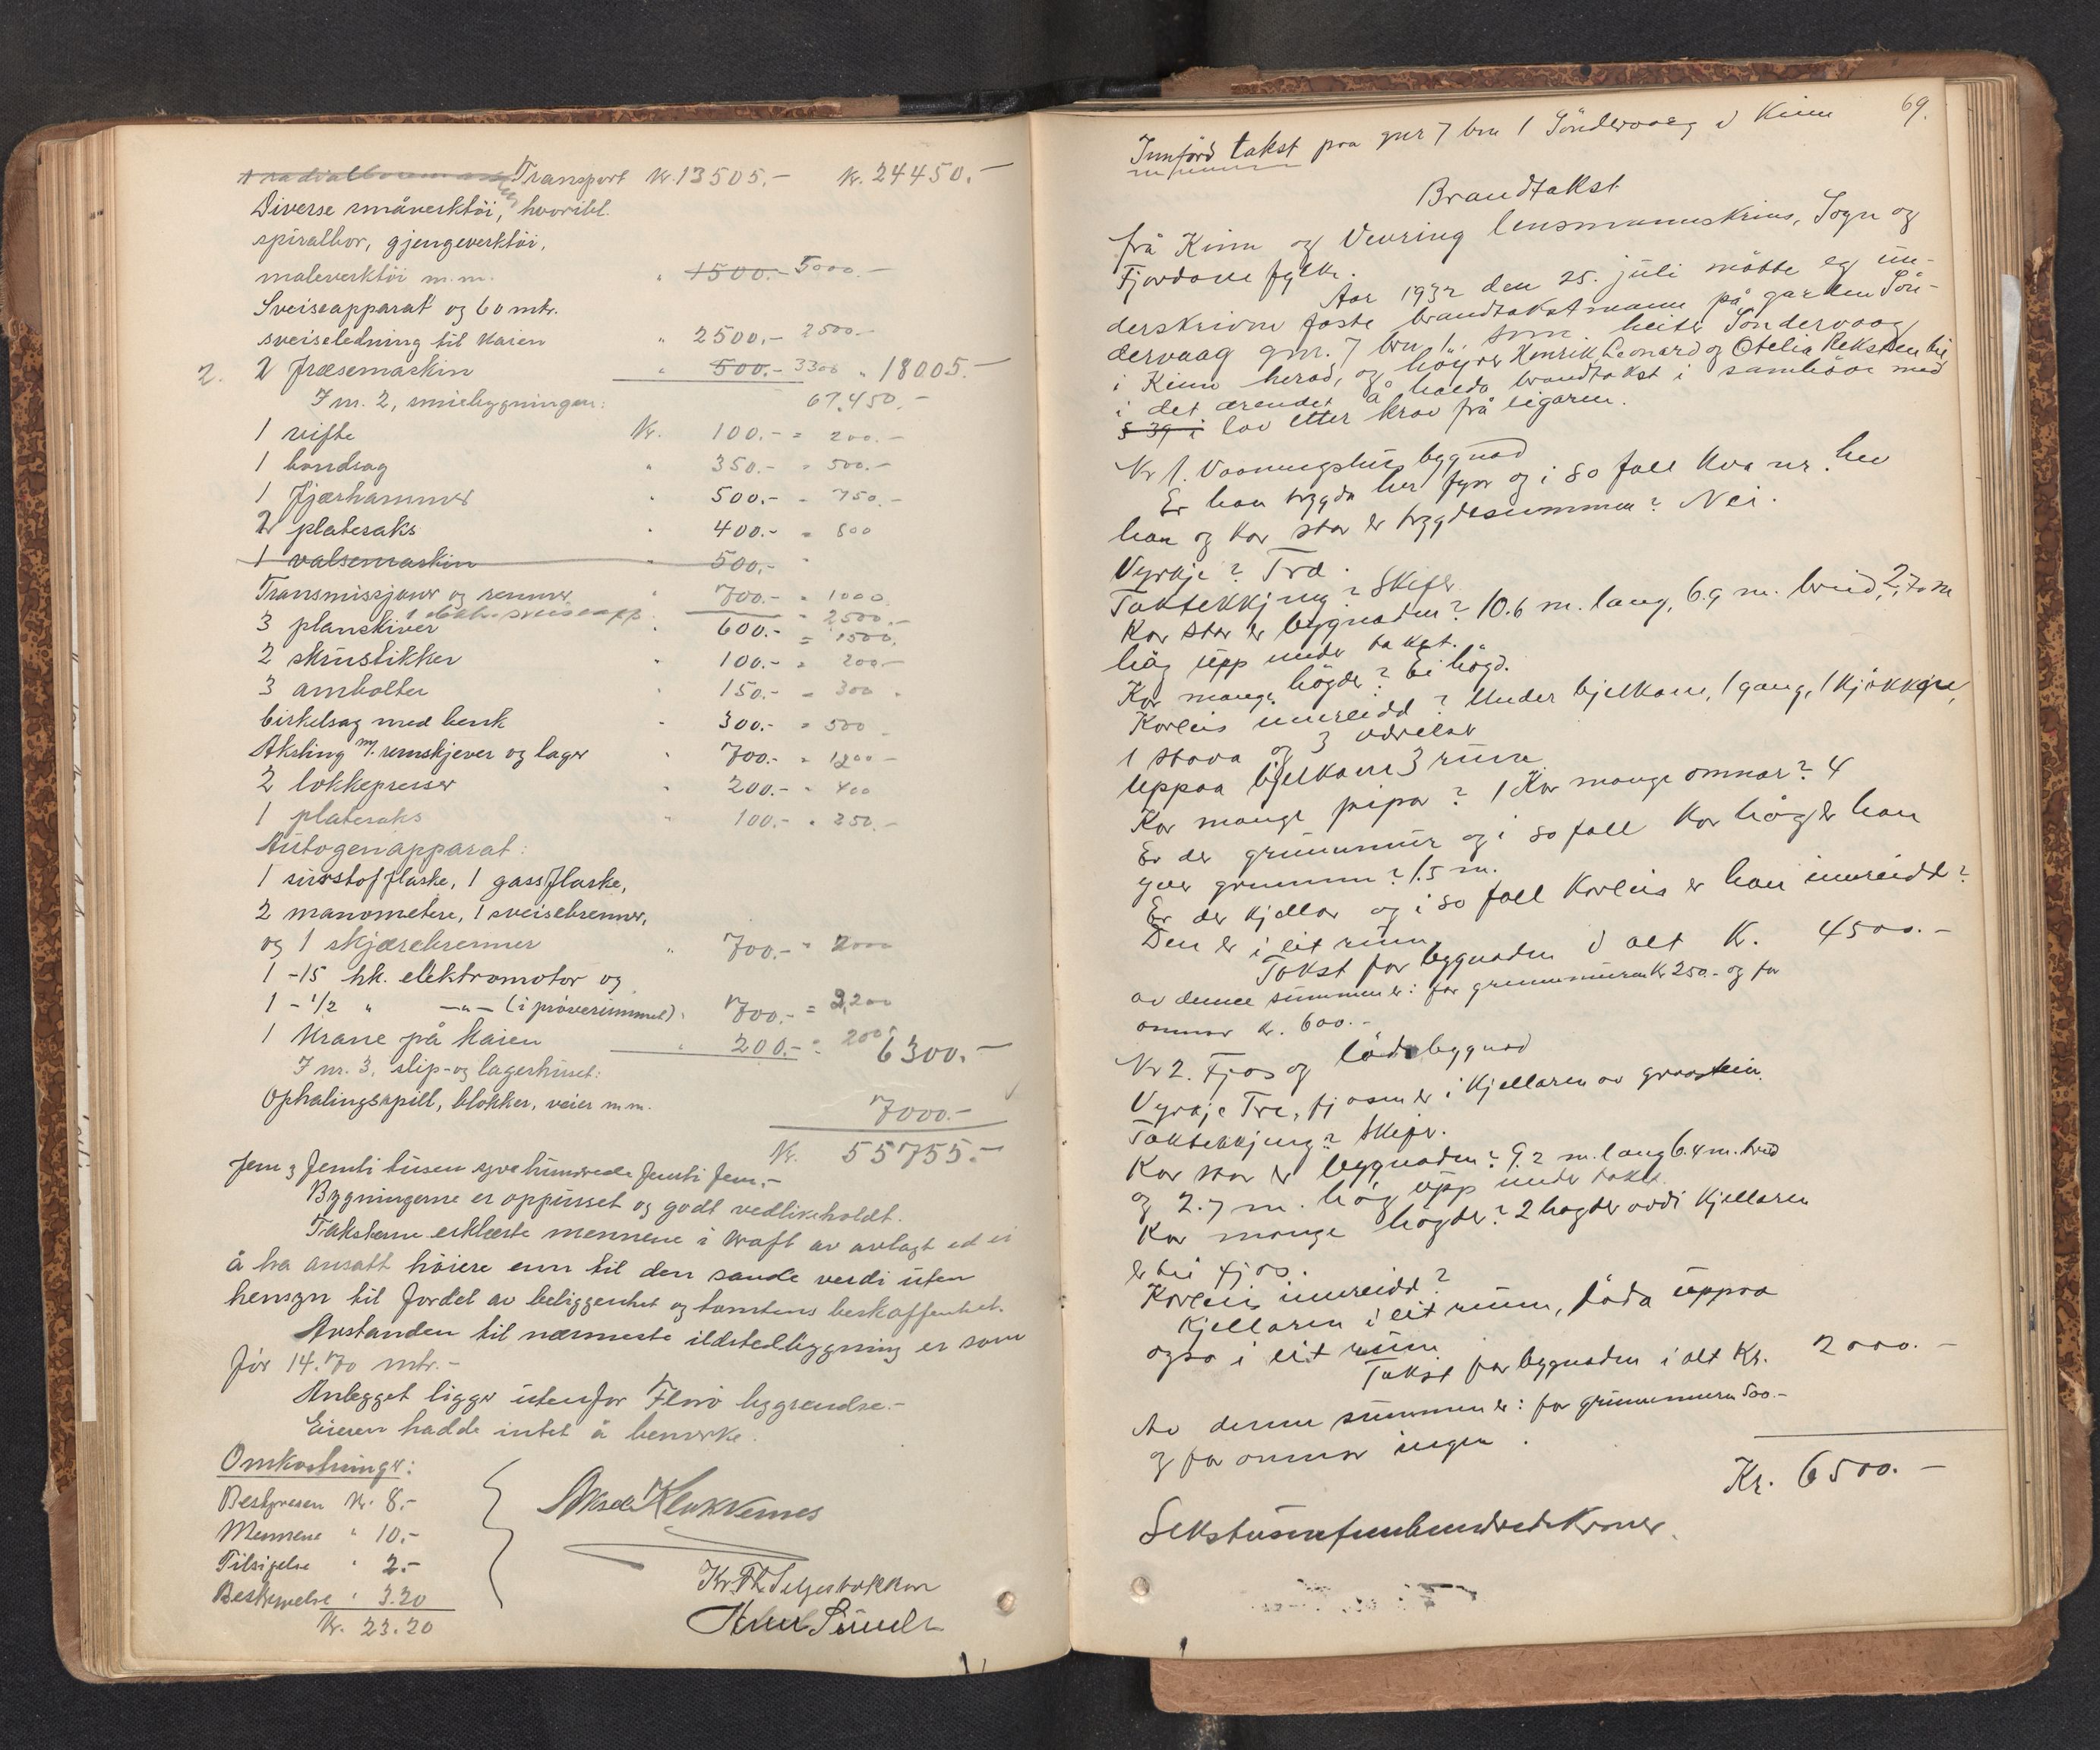 Transport Kr. 13505.- Kr. 24450.-
Diverse småverktöi, hvoribl.
spiralbor, gjengeverktöi,
maleverktöi m.m. " 1500.- 5000.-
Sveiseapparat og 60 mtr.
sveiseledning til kaien " 2500.- 2500.-
2. 2 fræsemaskin " 500.- 3300 " 18005.-
I nr. 2, smiebygningen: 67.450.-
1 vifte Kr. 100.- = 200.-
1 bandsag " 350.- " 500.-
1 fjærhammer " 500.- - 750.-
2 platesaks " 400.- = 800
1 valsemaskin " 500.- "
Transmissjoner og remmer " 700.- " 1000
1 elektr. sveiseapp. - 2500.-
3 planskiver " 600.- = 1500.
2 skrustikker " 100.- = 200.-
3 ambolter " 150.- = 300.
Cirkelsag med benk " 300.- = 500
Aksling m/. remskjever og lager " 700.- = 1200-
2 lokkepresser " 200.- " 400
1 platesaks " 100.- " 250.-
Autogenapparat:
1 surstofflaske, 1 gassflaske,
2 manometere, 1 sveisebrenner,
og 1 skjærebrenner " 700.- " 2000
1 - 15 hk. elektromotor og
1 - 1/2 " -"- (i pröverummet) " 700.- = 2,200
1 Krane på kaien " 200.- = 200 6300.-
I nr. 3, slip- og lagerhuset:
Ophalingsspill, blokker, veier m.m. 7000.-
Kr. 55755.-
Fem og femti tusen syvehundrede femti fem.-
Bygningerne er oppusset og godt vedlikeholdt.
Taksterne erklærte mennene i kraft av avlagt ed ei
å ha ansatt höiere enn til den sande verdi uten
hensyn til fordel av beliggenhet og tomtens beskaffenhet.
Avstanden til nærmeste ildstedbygning er som
för 14.70 mtr.-
Anlegget ligger utenfor Florö bygrendse.-
Eieren hadde intet å bemerke.
Omkostninger:
Bestyrelsen Kr. 8.-
Mennene " 10.-
Tilsigelse " 2.-
Beskrivelse " 3.20
Kr. 23.20
Klokkernes
69.
Innförd takst paa gnr 7 bnr 1 Söndervaag i Kinn
Brandtakst
frå Kinn og Vevring lensmannskrins, Sogn og
Fjordane fylke.
Aar 1932 den 25. juli mötte eg un-
derskrivne faste brandtakstmann på garden Sön-
dervaag gnr. 7 bnr 1. som heiter Söndervaag
i Kinn herad, og höyrer Henrik, Leonard og Otelia Reksten til
i det ærendet å halda brandtakst i samhöve med
§ 39 i lov etter krav frå eigaren.
Nr 1. Vaaningshus bygnad
Er han trygda her fyrr og i so fall kva nr. hev
han og kor stor er trygdesummen? Nei.
Vyrkje? Tre.
Taktekkjing? Skifer
Kor stor er bygnaden? 10.6 m. lang, 6.9 m. breid, 2.70 m
hög upp under taket.
Kor mange högder? Ei högd.
Korleis innreidd? Under bjelkane, 1 gang, 1 kjökken,
1 stova og 3 værelser
Uppaa bjelkane 3 rum.
Kor mange pipor? 1 Kor mange omnar? 4
Er der grunnmur og i so fall kor hög er han
yver grunnen? 1.5 m.
Er der kjellar og i so fall korleis er han innreidd?
Den er i eit rum.
Takst for bygnaden i alt Kr. 4500.-
av denne summen er: for grunnmuren Kr 250.- og for
omnar kr. 600.-
Nr 2. Fjos og lödebygnad
Vyrkje Tre, fjosen er i kjellaren av graastein.
Taktekkjing? Skifer.
Kor stor er bygnaden? 9.2 m. lang 6.4 m. breid
og 2.7 m. hög upp under taket.
Kor mange högder? 2 högder avdi kjellaren
er til fjos.
Korleis innreidd?
Kjellaren i eit rum, löda uppaa
ogso i eit rum
Takst for bygnaden i alt Kr. 2000.-
Av denne summen er: for grunnmuren 500.-
og for omnar ingen.
Kr. 6500.-
Sekstusenfemhundredekroner.